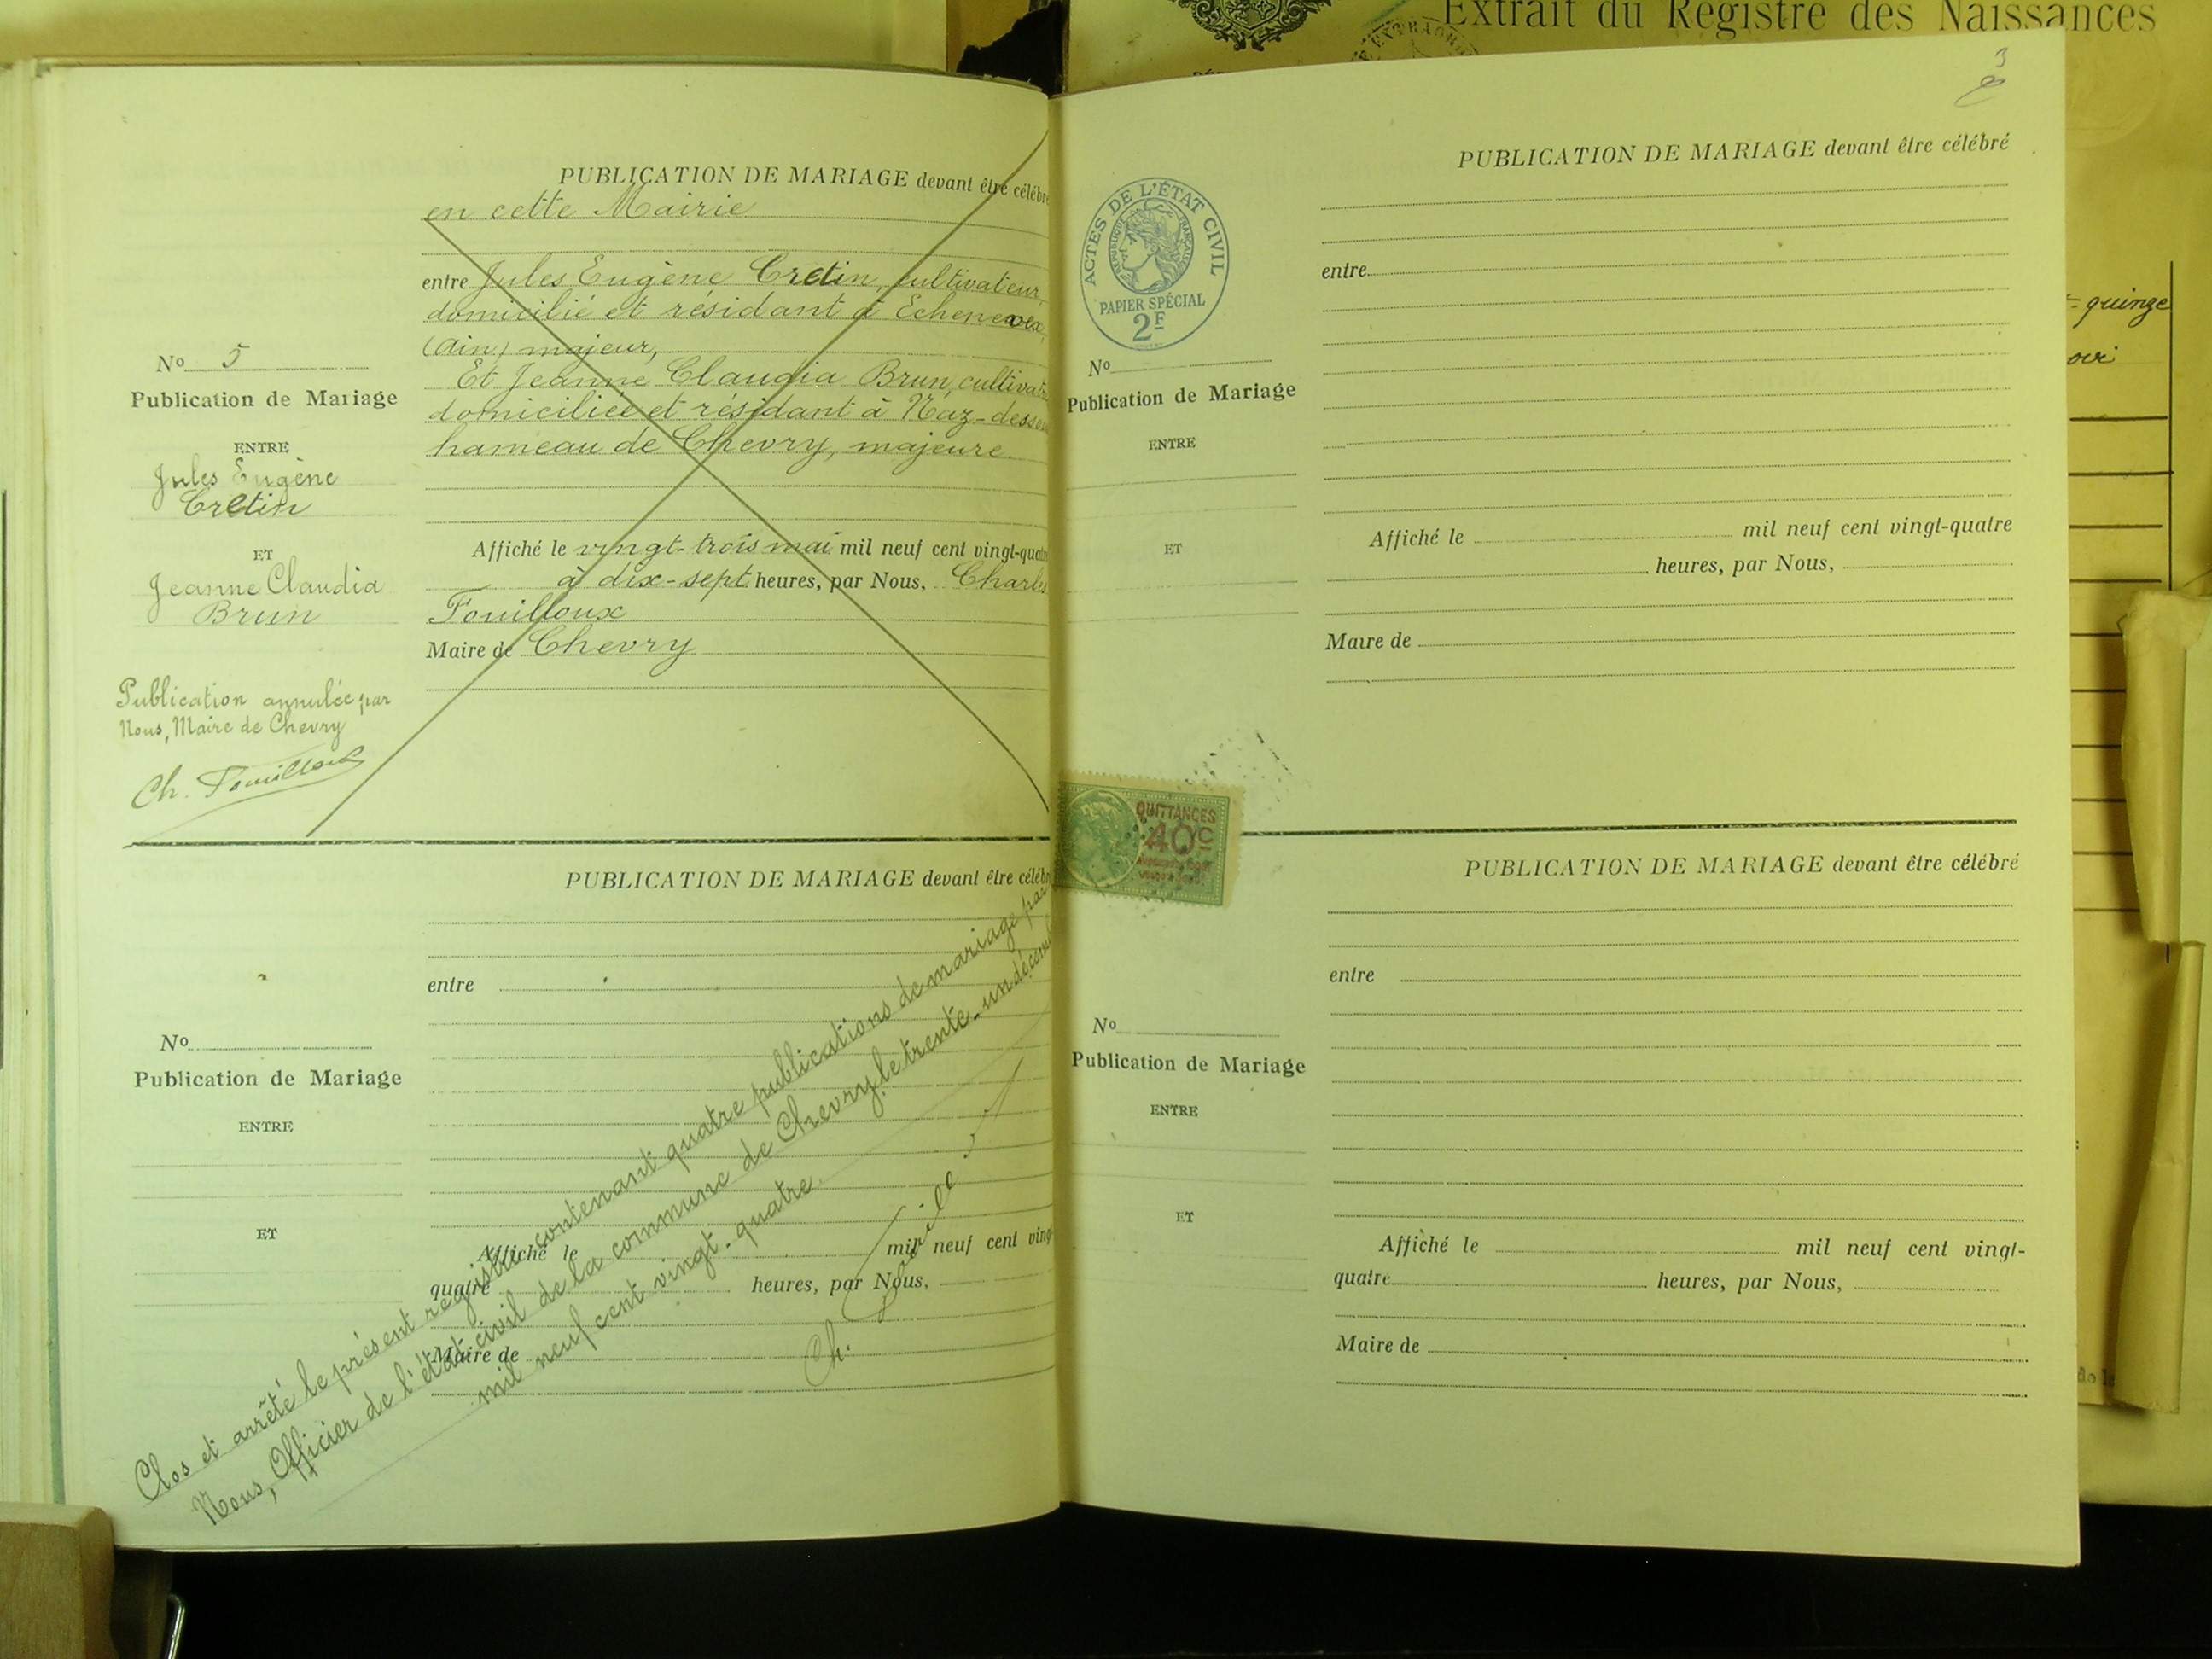 PUBLICATION DE MARIAGE devant être célébré
en cette Mairie
entre Jules Eugène Cretin, cultivateur,
domicilié et résidant à Echenevex
(Ain) majeur,
Et Jeanne Claudia Brun, cultivatr
domiciliée et résidant à Naz-dessou
hameau de Chevry, majeure.
Affiché le vingt-trois mai mil neuf cent vingt-quatr
à dix-sept heures, par Nous, Charles
Fouilloux
Maire de Chevry
No 5
Publication de Mariage
ENTRE
Jules Eugène
Cretin
ET
Jeanne Claudia
Brun
Publication annulée par
Nous, Maire de Chevry
Ch. Fouilloux
PUBLICATION DE MARIAGE devant être célébr
entre
No
Publication de Mariage
ENTRE
ET
Affiché le mil neuf cent vingt
quatre heures, par Nous,
Maire de
Clos et arrêté le présent registre contenant quatre publications de mariage par
Nous, Officier de l'état-civil de la commune de Chevry, le trente-un décemb
mil neuf cent vingt-quatre.
Ch.
Extrait du Registre des Naissances
3
PUBLICATION DE MARIAGE devant être célébré
ACTES DE L'ÉTAT CIVIL
RÉPUBLIQUE FRANÇAISE
PAPIER SPÉCIAL
2F
entre
No
Publication de Mariage
ENTRE
ET
Affiché le mil neuf cent vingt-quatre
heures, par Nous,
Maire de
QUITTANCES
40c
PUBLICATION DE MARIAGE devant être célébré
entre
No
Publication de Mariage
ENTRE
ET
Affiché le mil neuf cent vingt-
quatre heures, par Nous,
Maire de
quinze